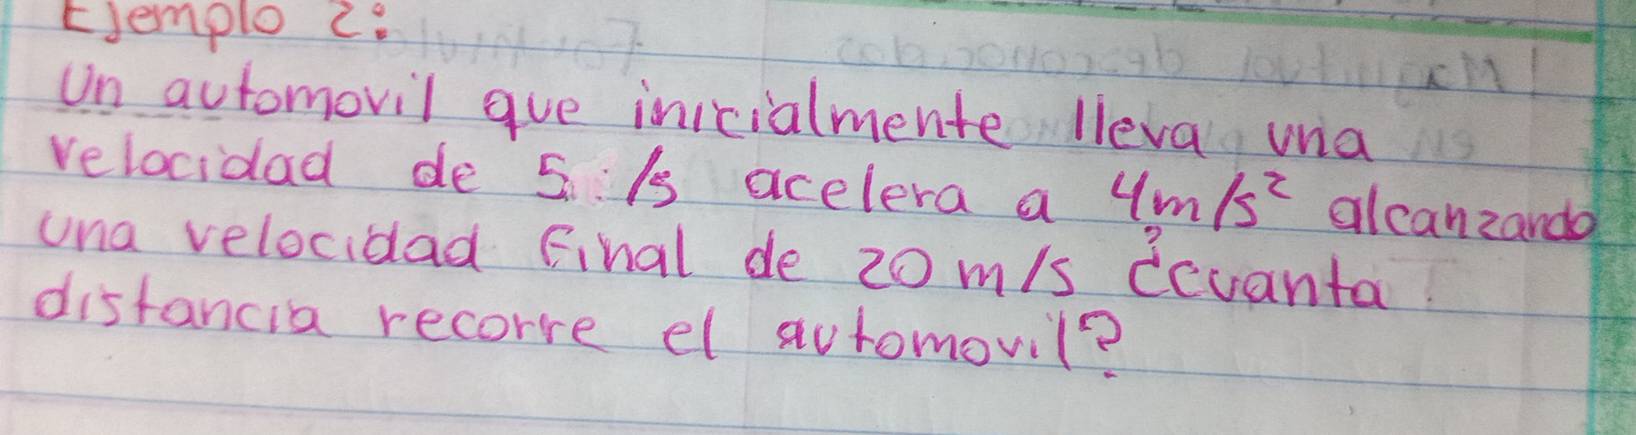 Ejemplo 2:
Un automovil que inicialmente lleva una
velocidad de 5 /s acelera a 4m/s² alcanzando
una velocidad Final de 20 m/s ¿cuanta
distancia recorre el automovil?